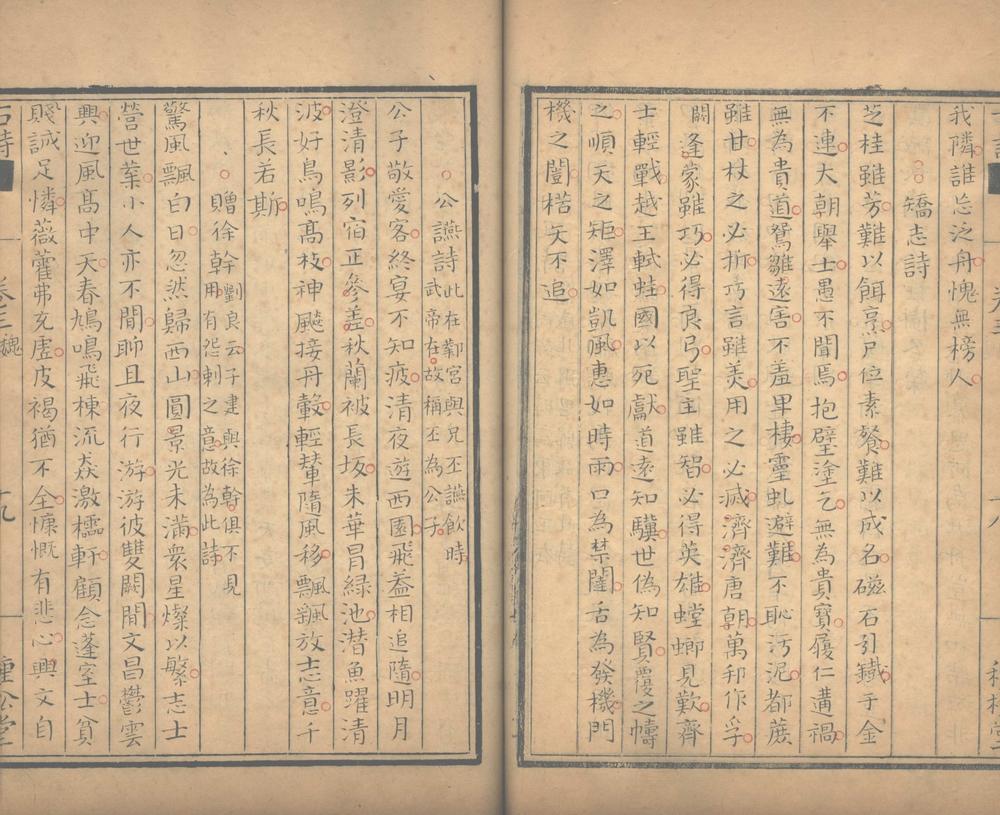 我隣誰忘泛舟愧無榜人
矯志詩
芝桂雖芳難以餌烹尸位素餐難以成名磁石引鐵于金
不連大朝舉士愚不聞焉抱璧塗乞無為貴寶履仁遘禍
無為貴道鴛雛遠害不羞卑棲靈虬避難不恥污泥都蔗
雖甘杖之必折巧言雖美用之必滅濟濟唐朝萬邦作孚
逢蒙雖巧必得良弓聖主雖智必得英雄螳螂見歎齊
士輕戰越王軾蛙國以死獻道遠知驥世偽知賢覆之幬
之順天之矩澤如凱風惠如時雨口為禁闥舌為發機門
機之闓楛矢不追
公讌詩 此在鄴宮與兄丕讌飲時
武帝在故稱丕為公子
公子敬愛客終宴不知疲清夜遊西園飛葢相追隨明月
澄清影列宿正參差秋蘭被長坂朱華冒緑池潛魚躍清
波好鳥鳴髙枝神飈接丹轂輕輦隨風移飄颻放志意千
秋長若斯
贈徐幹 劉良云子建與徐幹俱不見
用有怨刺之意故為此詩
驚風飄白日忽然歸西山圓景光未滿衆星燦以繁志士
營世業小人亦不閒聊且夜行游游彼雙闕間文昌鬱雲
興迎風髙中天春鳩鳴飛棟流猋激櫺軒顧念蓬室士貧
賤誠足憐薇藿弗充虛皮褐猶不全慷慨有悲心興文自
古詩
卷三 魏
十九